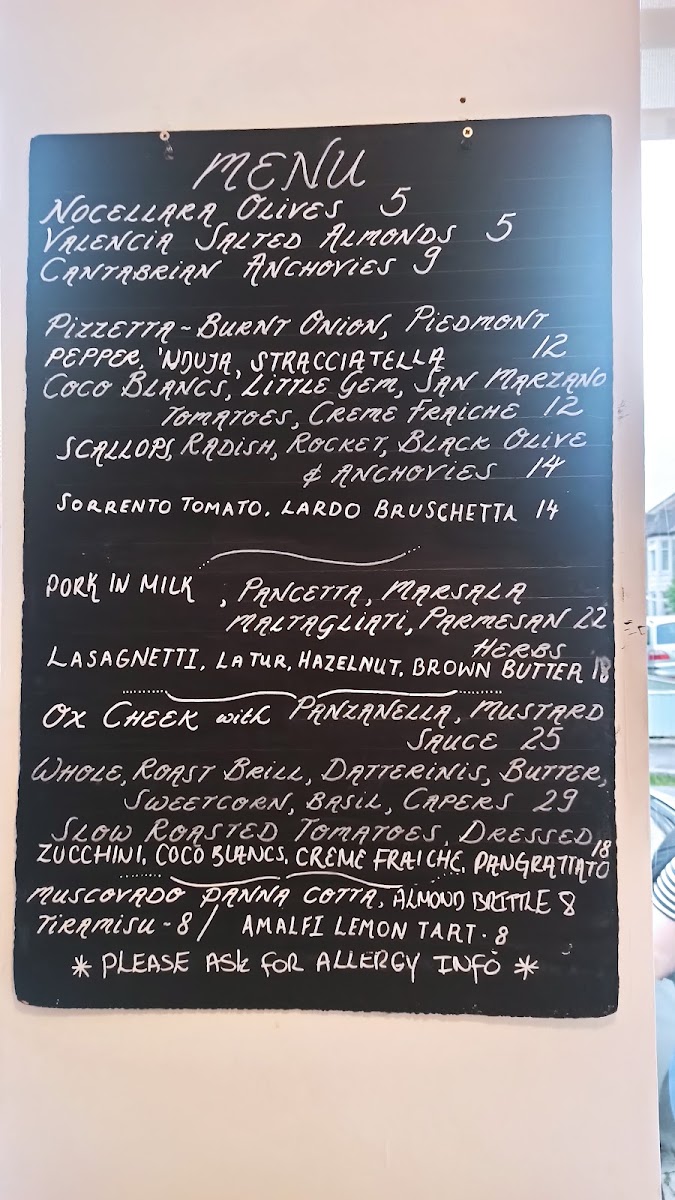 MENU
NOCELLARA OLIVES 5
VALENCIA SALTED ALMONDS 5
CANTABRIAN ANCHOVIES 9
PIZZETTA - BURNT ONION, PIEDMONT
PEPPER, 'NDUJA, STRACCIATELLA 12
COCO BLANCS, LITTLE GEM, SAN MARZANO
TOMATOES, CREME FRAICHE 12
SCALLOPS, RADISH, ROCKET, BLACK OLIVE
& ANCHOVIES 14
SORRENTO TOMATO, LARDO BRUSCHETTA 14
PORK IN MILK, PANCETTA, MARSALA
MALTAGLIATI, PARMESAN 22
HERBS
LASAGNETTI, LA TUR, HAZELNUT, BROWN BUTTER 18
OX CHEEK with PANZANELLA, MUSTARD
SAUCE 25
WHOLE, ROAST BRILL, DATTERINIS, BUTTER,
SWEETCORN, BASIL, CAPERS 29
SLOW ROASTED TOMATOES, DRESSED 18
ZUCCHINI, COCO BLANCS, CREME FRAICHE, PANGRATTATO
MUSCOVADO PANNA COTTA, ALMOND BRITTLE 8
TIRAMISU - 8 / AMALFI LEMON TART - 8
* PLEASE ASK FOR ALLERGY INFO *